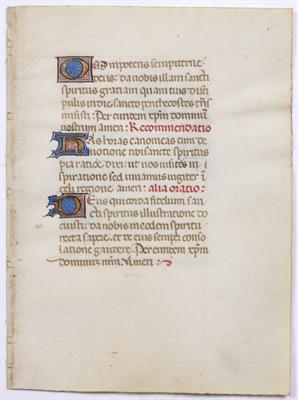 Omnipotens sempiterne
deus: da nobis illam sancti
spiritus gratiam quam tuis disci
pulis in die sancto penthecostes
misisti: Per eundem xpm dominum
nostrum amen: Recommendatio
Has horas canonicas cum de
uotione tibi sancte spiritus
pia ratione dixi: ut nos uisites in
spiratione sed uiuamus iugiter i
celi regione amen: alia oratio:
Deus qui corda fidelium san
cti spiritus illustratione do
cuisti: da nobis in eodem spiritu
recta sapere, et de eius semper conso
latione gaudere. Per eundem xpm
dominum nrm. Amen: